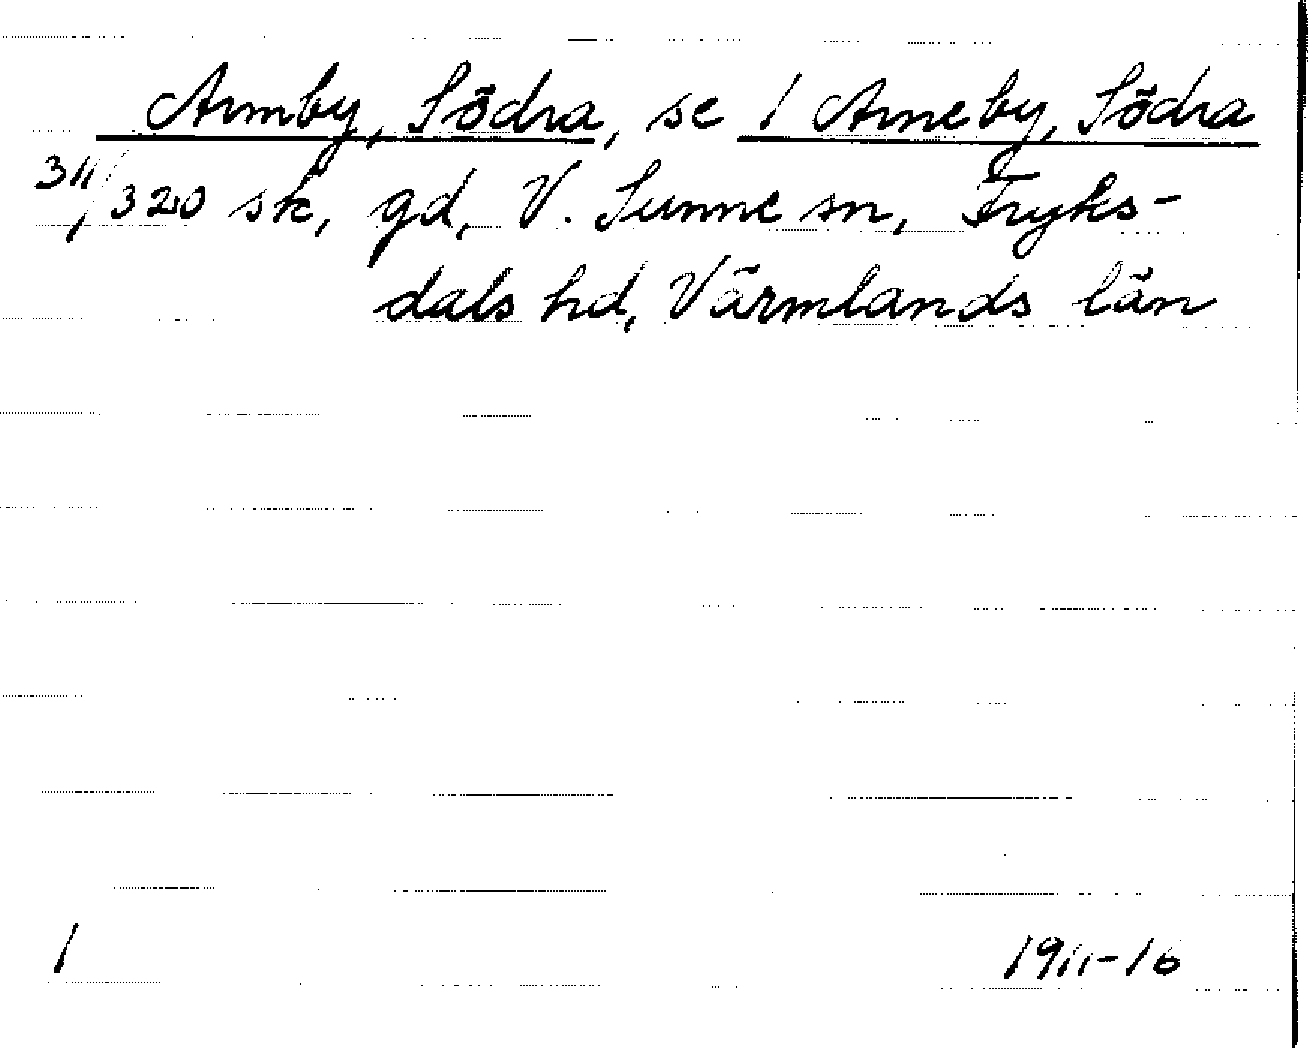 Armby, Södra, se 1 Arneby, Södra
311/320 sk, gd, V. Sunne sn, Fryks-
dals hd, Värmlands län
1 1911-16